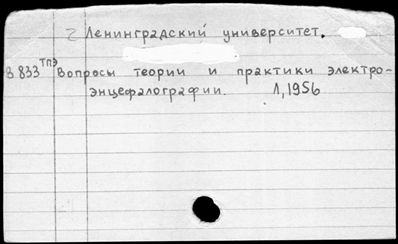 2 Ленинградский университет.
В 833 ТПЭ Вопросы теории и практики электро-
энцефалографии. Л, 1956